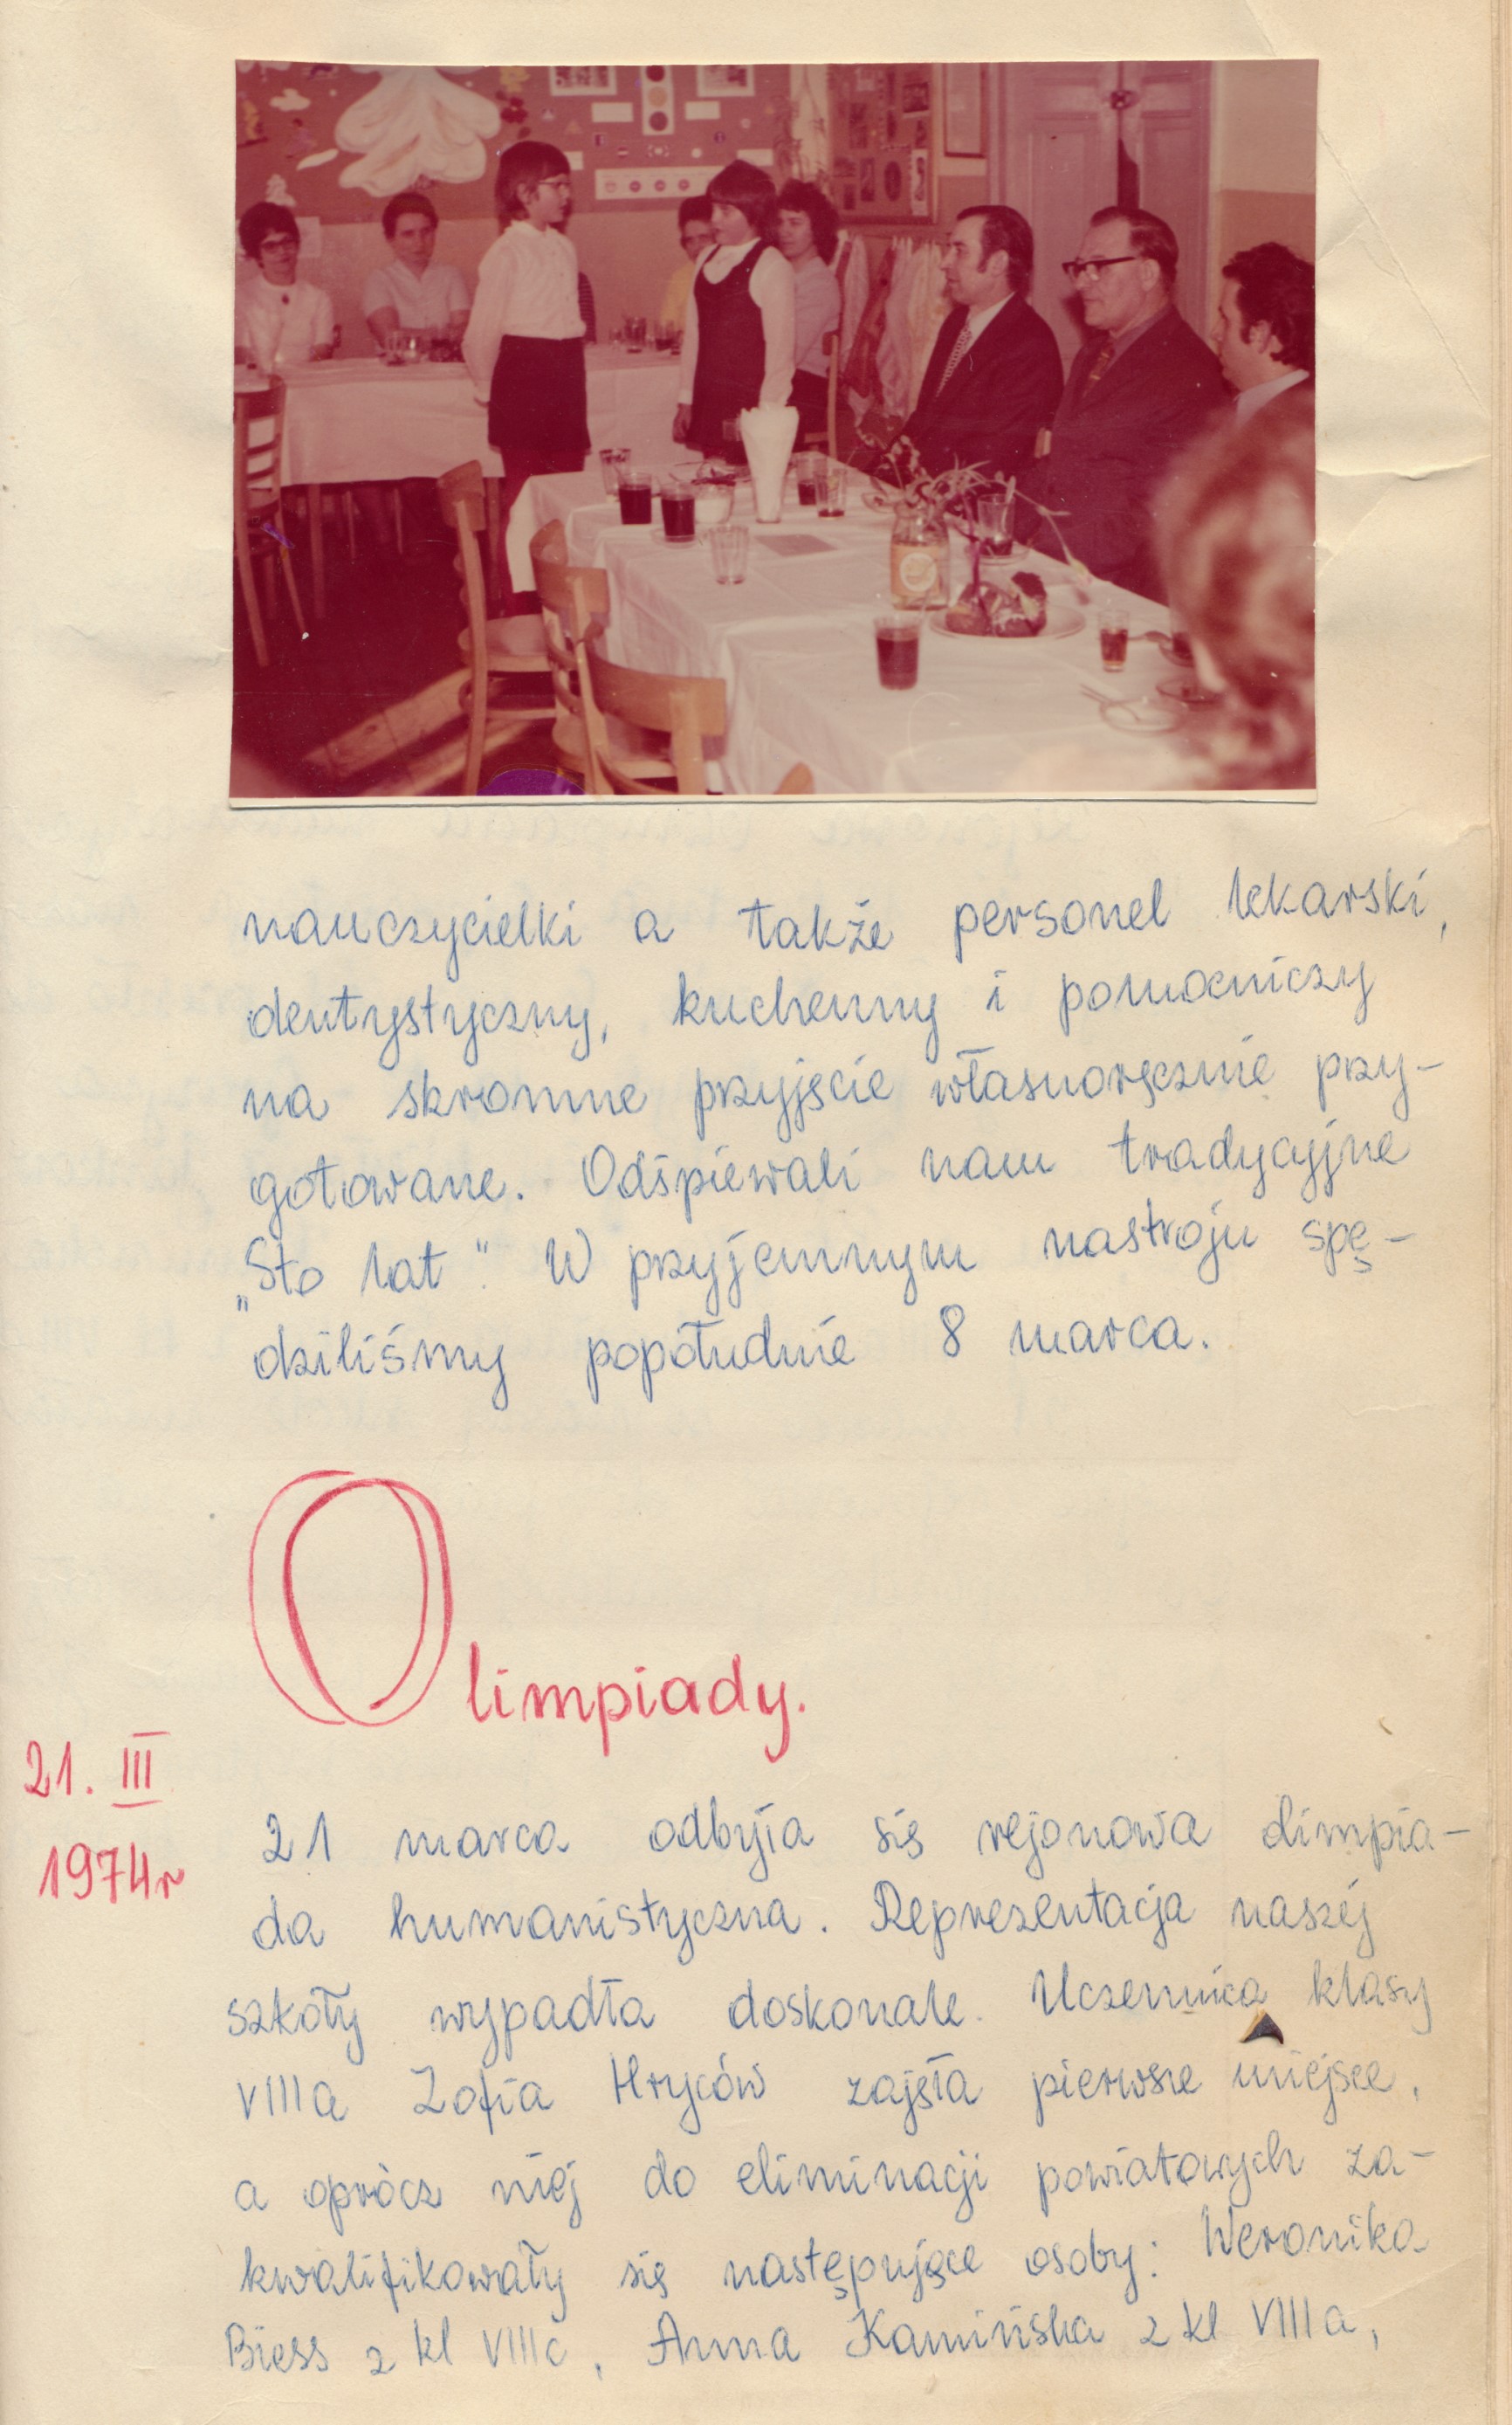 nauczycielki a także personel lekarski,
dentystyczny, kuchenny i pomocniczy
na skromne przyjęcie własnoręcznie przy-
gotowane. Odśpiewali nam tradycyjne
„Sto lat". W przyjemnym nastroju spę-
dziliśmy popołudnie 8 marca.
Olimpiady.
21. III
1974r
21 marca odbyła się rejonowa olimpia-
da humanistyczna. Reprezentacja naszej
szkoły wypadła doskonale. Uczennica klasy
VIIIa Zofia Hryców zajęła pierwsze miejsce,
a oprócz niej do eliminacji powiatowych za-
kwalifikowały się następujące osoby: Weronika
Biess z kl VIIIc, Anna Kamińska z kl VIIIa,